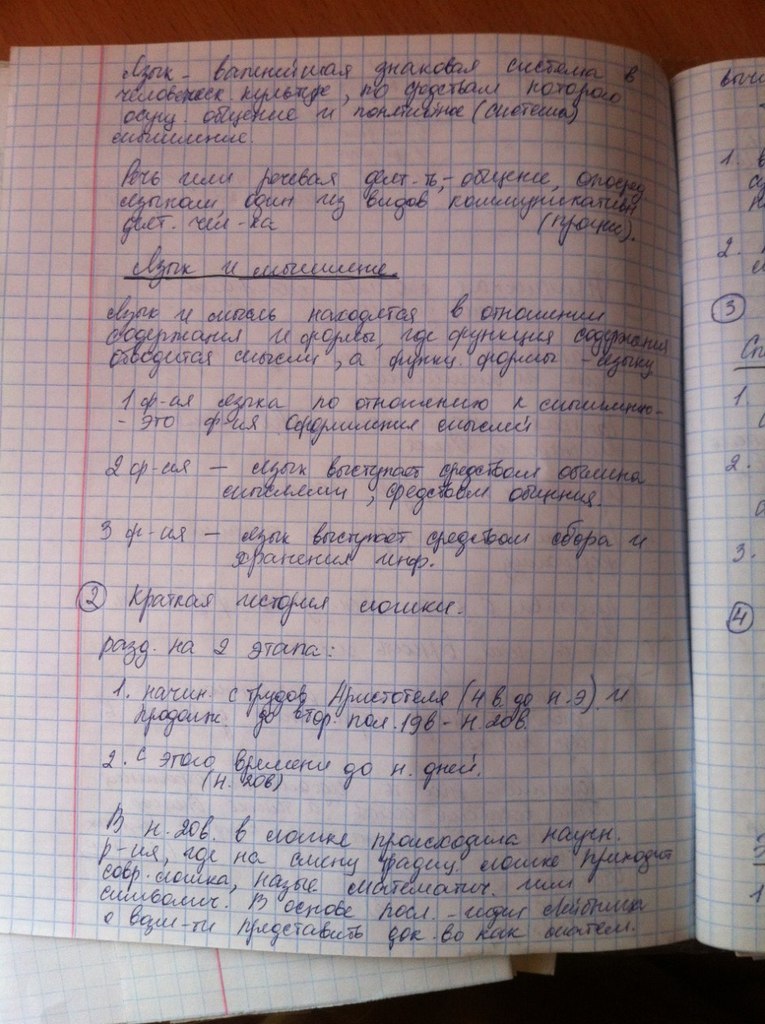 Язык - важнейшая знаковая система в
человеческ. культуре, по средствам которого
осущ. общение и понятийное (система)
мышление.
Речь или речевая деят-ть, - общение, опосред
языком один из видов коммуникативн
деят. чел-ка (процес).
Язык и мышление.
Язык и мысль находятся в отношении
содержания и формы, где функция содержания
отводится мысли, а функц. формы - языку
1 ф-ия языка по отношению к мышлению-
- это ф-ия оформления мыслей
2 ф-ия — язык выступает средством обмена
мыслями, средством общения.
3 ф-ия — язык выступает средством сбора и
хранения инф.
2 Краткая история логики.
разд. на 2 этапа:
1. начин. с трудов Аристотеля (4 в. до н.э) и
продолж. до втор. пол. 19в - н. 20в.
2. с этого времени до н. дней.
(н. 20в)
В н. 20в. в логике происходила научн.
р-ия, где на смену традиц. логике приходит
совр. логика, назыв. математич. или
символич. В основе посл. - идея Лейбница
о возм-ти представить док-во как математ.
выч
1. в
2.
3
Сп
1.
2.
3.
4
1